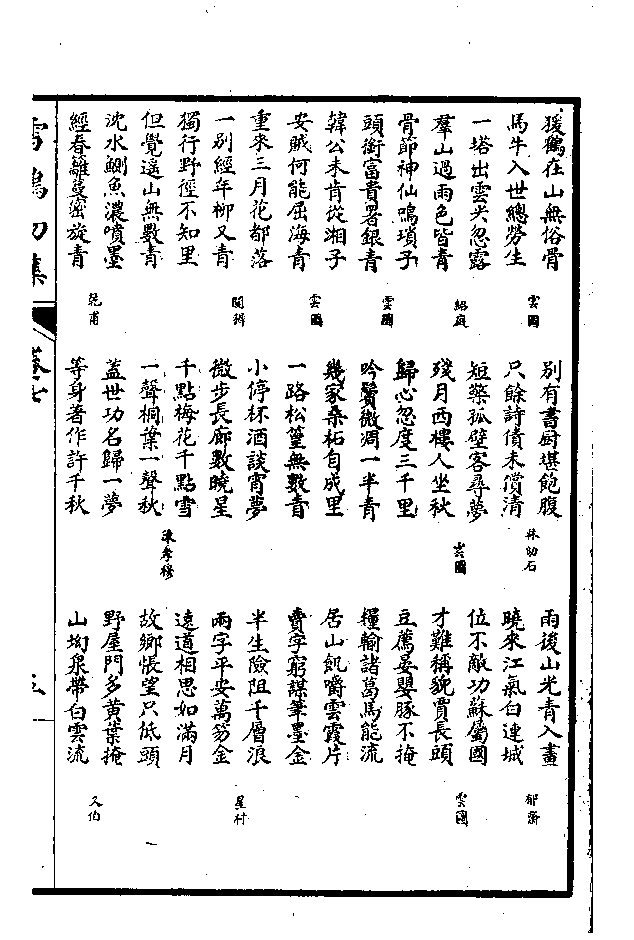 猨鶴在山無俗骨
馬牛入世總勞生 雲圖
一塔出雲尖忽露
羣山過雨色皆青 紹庭
骨節神仙鳴瑣子
頭銜富貴署銀青 雲圖
韓公未肯從湘子
安賊何能屈海青 雲圖
重來三月花都落
一別經年柳又青
獨行野徑不知里
但覺遥山無數青
沈水鰂魚濃噴墨
經春蘺蔓密旋青 乾甫
別有書厨堪飽腹
只餘詩債未償清 林幼石
短檠孤壁客尋夢
殘月西樓人坐秋 雲圖
歸心忽度三千里
吟鬢微凋一半青
幾家桑柘自成里
一路松篁無數青
小停杯酒談宵夢
微步長廊數曉星
千點梅花千點雪
一聲桐葉一聲秋 陳孝穆
蓋世功名歸一夢
等身著作許千秋
雨後山光青入畫
曉來江氣白連城 郁齋
位不敵功蘇屬國
才難稱貌賈長頭 雲圖
豆薦晏嬰豚不掩
糧輸諸葛馬能流
居山飢嚼雲霞片
賣字窮謀筆墨金
半生險阻千層浪
兩字平安萬笏金 星村
遠道相思如滿月
故鄉悵望只低頭
野屋門多黄葉掩
山坳泉帶白雲流 久伯
雪鴻初集 卷七